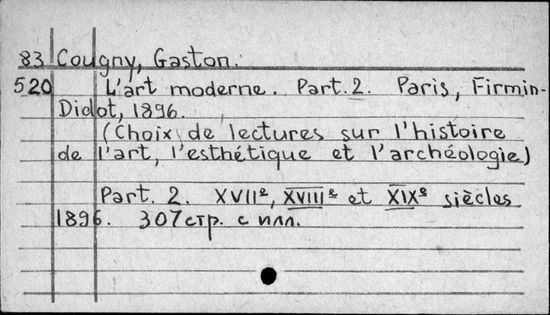 83 Cougny, Gaston.
520 L'art moderne. Part. 2. Paris, Firmin-
Didot, 1896.
(Choix de lectures sur l'histoire
de l'art, l'esthétique et l'archéologie)
Part. 2. XVIIe, XVIIIe et XIXe siècles
1896. 307 стр. с илл.